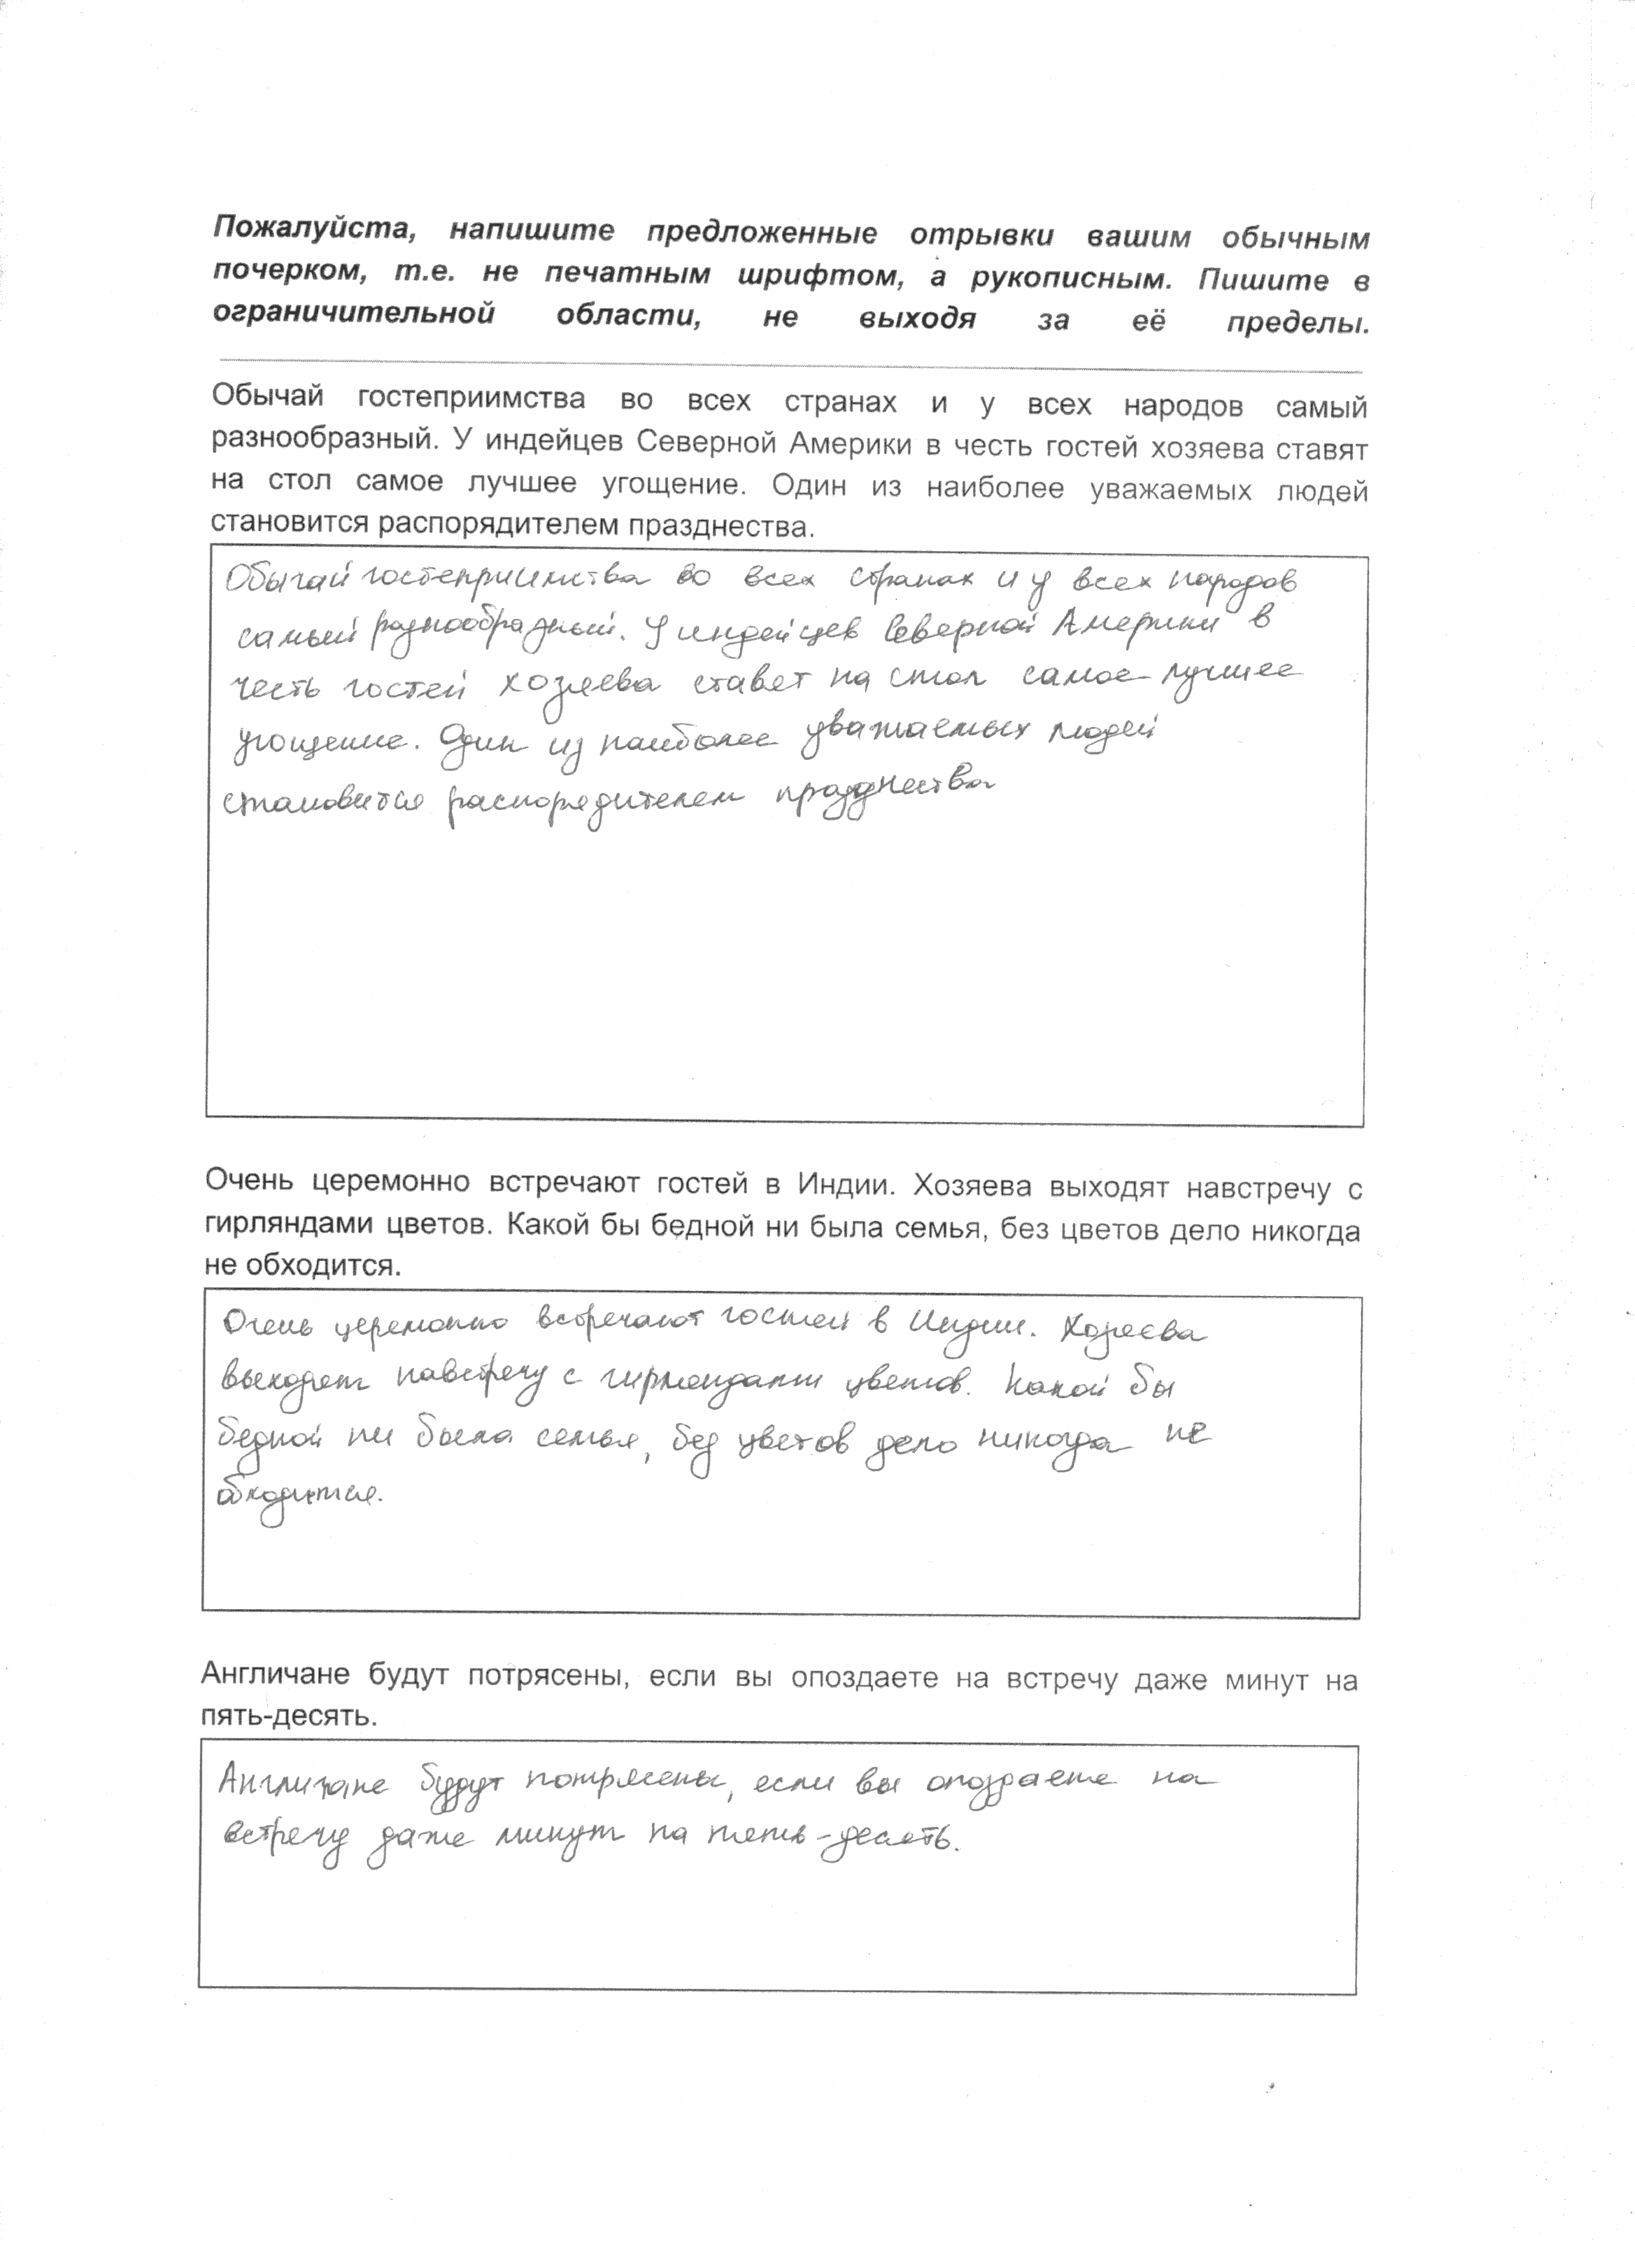 Пожалуйста, напишите предложенные отрывки вашим обычным
почерком, т.е. не печатным шрифтом, а рукописным. Пишите в
ограничительной области, не выходя за её пределы.
Обычай гостеприимства во всех странах и у всех народов самый
разнообразный. У индейцев Северной Америки в честь гостей хозяева ставят
на стол самое лучшее угощение. Один из наиболее уважаемых людей
становится распорядителем празднества.
Обычай гостеприимства во всех странах и у всех народов
самый разнообразный. У индейцев Северной Америки в
честь гостей хозяева ставят на стол самое лучшее
угощение. Один из наиболее уважаемых людей
становится распорядителем празднества
Очень церемонно встречают гостей в Индии. Хозяева выходят навстречу с
гирляндами цветов. Какой бы бедной ни была семья, без цветов дело никогда
не обходится.
Очень церемонно встречают гостей в Индии. Хозяева
выходят навстречу с гирляндами цветов. Какой бы
бедной ни была семья, без цветов дело никогда не
обходится.
Англичане будут потрясены, если вы опоздаете на встречу даже минут на
пять-десять.
Англичане будут потрясены, если вы опоздаете на
встречу даже минут на пять-десять.